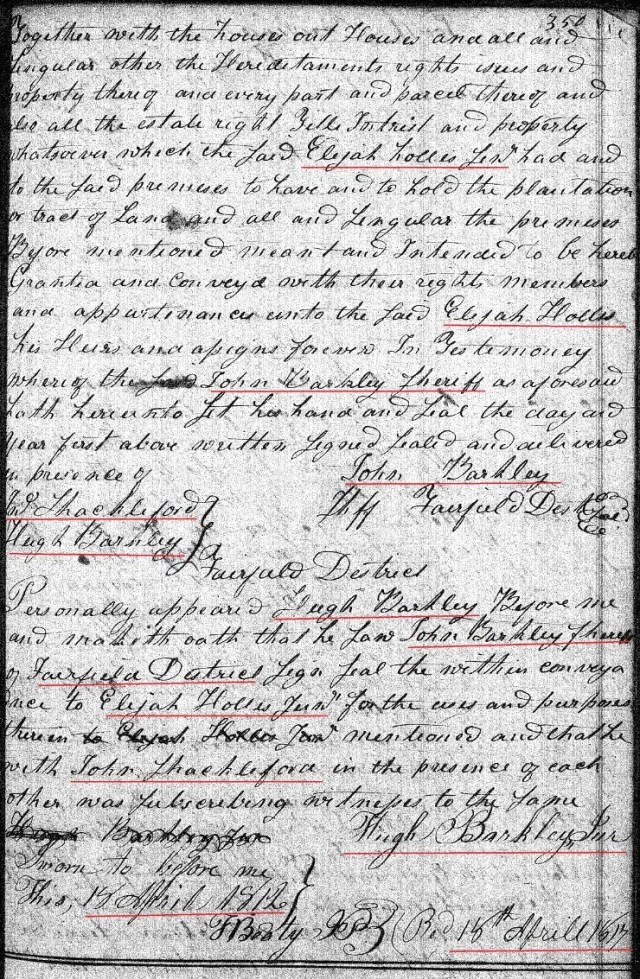 350
Together with the houses out Houses and all and
Singular other the Hereditaments rights issues and
property thereof and every part and parcel thereof and
also all the estate right Title Intrist and property
whatsoever which the said Elijah Hollis Senr had and
to the said premeses to have and to hold the plantation
or tract of Land and all and Singular the premeses
Before mentioned meant and Intended to be hereb
Granted and Conveyd with their rights members
and appurtinances unto the said Elijah Hollis
his Heirs and asigns forever In Testemoney
whereof the said John Barkley Sheriff as aforesaid
hath hereunto Set his hand and Seal the day and
year first above written Signed Sealed and delivered
in presence of John Barkley
Jno Shackleford Shff Fairfield Dest Seal
Hugh Barkley
Fairfield District
Personally appeared Hugh Barkley Before me
and makith oath that he saw John Barkley Sheriff
of Fairfield District Sign Seal the within conveya
ance to Elijah Hollis Junr for the uses and purposes
therein to Elijah Hollis Junr mentioned and that he
with John Shackleford in the presence of each
other was Subscribing witnesses to the Same
Hugh Barkley Jur Hugh Barkley Jur
Sworn to before me
This 18 April 1812
Recd 18th Aprill 1812